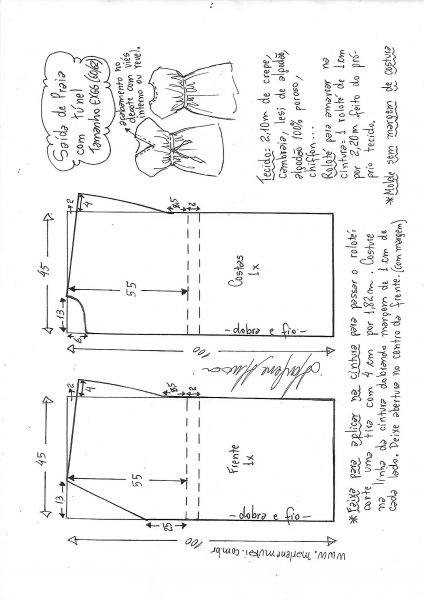 Saída de Praia
com túnel
Tamanho EXGG (60/62)
acabamento no
decote com viés
interno ou revel.
Tecido: 2,10m de crepe,
cambraia, lesi de algodão,
algodão 100% poroso,
chiffon...
Rolotê para amarrar na
cintura: 1 rolotê de 1cm
por 2,20m feito do pró-
prio tecido.
*Molde sem margem de costura
45
2
4
13
6
55
8,5
2
Costas
1x
- fio e dobra -
100
Marlene Mukai
45
2
4
13
55
8,5
2
Frente
1x
25
- fio e dobra -
100
www.marlenemukai.com.br
*Faixa para aplicar na cintura para passar o rolotê:
corte uma tira com 4cm por 1,82m. Costure
na linha da cintura dobrando margem de 1cm de
cada lado. Deixe abertura no centro da frente. (com margem)